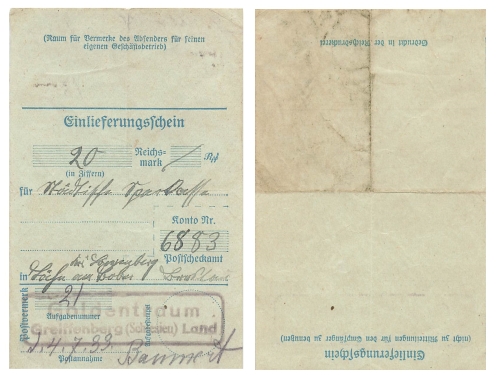 (Raum für Vermerke des Absenders für seinen
eigenen Geschäftsbetrieb)
Einlieferungsschein
20 Reichsmark / Rpf
(in Ziffern)
für Städtische Sparkasse
Konto Nr.
6883
Postscheckamt
in Lähn am Bober Breslau
Postvermerk
21
Aufgabenummer
Greiffenberg (Schlesien) Land
4.7.33.
Postannahme
Gedruckt in der Reichsdruckerei
Einlieferungsschein
(nicht zu Mitteilungen für den Empfänger zu benutzen)